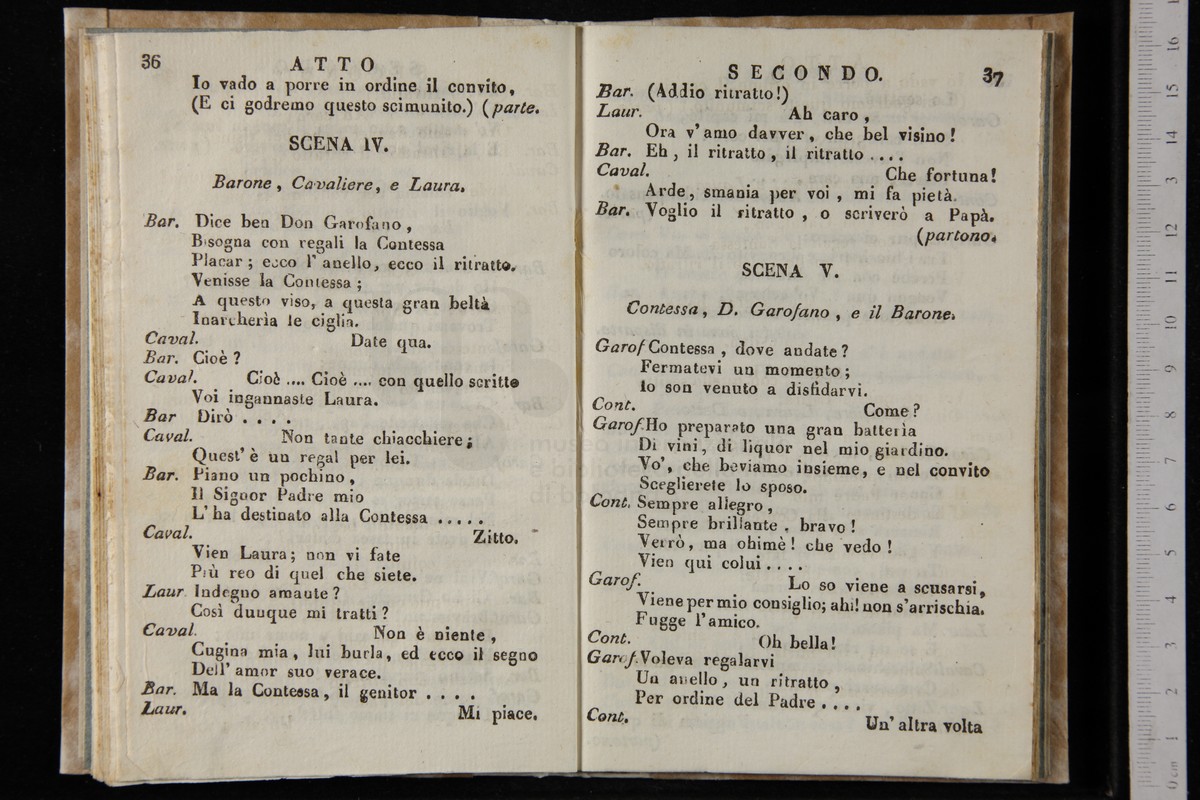 36
ATTO
Io vado a porre in ordine il convito,
(E ci godremo questo scimunito.) (parte.
SCENA IV.
Barone, Cavaliere, e Laura.
Bar. Dice ben Don Garofano,
Bisogna con regali la Contessa
Placar; ecco l'anello, ecco il ritratto.
Venisse la Contessa;
A questo viso, a questa gran beltà
Inarcherìa le ciglia.
Caval. Date qua.
Bar. Cioè?
Caval. Cioè .... Cioè .... con quello scritto
Voi ingannaste Laura.
Bar Dirò ....
Caval. Non tante chiacchiere;
Quest'è un regal per lei.
Bar. Piano un pochino,
Il Signor Padre mio
L'ha destinato alla Contessa .....
Caval. Zitto.
Vien Laura; non vi fate
Più reo di quel che siete.
Laur. Indegno amante?
Così dunque mi tratti?
Caval. Non è niente,
Cugina mia, lui burla, ed ecco il segno
Dell'amor suo verace.
Bar. Ma la Contessa, il genitor ....
Laur. Mi piace.
SECONDO.
37
Bar. (Addio ritratto!)
Laur. Ah caro,
Ora v'amo davver, che bel visino!
Bar. Eh, il ritratto, il ritratto ....
Caval. Che fortuna!
Arde, smania per voi, mi fa pietà.
Bar. Voglio il ritratto, o scriverò a Papà.
(partono.
SCENA V.
Contessa, D. Garofano, e il Barone.
Garof Contessa, dove andate?
Fermatevi un momento;
Io son venuto a disfidarvi.
Cont. Come?
Garof. Ho preparato una gran batterìa
Di vini, di liquor nel mio giardino.
Vo', che beviamo insieme, e nel convito
Sceglierete lo sposo.
Cont. Sempre allegro,
Sempre brillante, bravo!
Verrò, ma ohimè! che vedo!
Vien qui colui....
Garof. Lo so viene a scusarsi,
Viene per mio consiglio; ahi! non s'arrischia.
Fugge l'amico.
Cont. Oh bella!
Garof. Voleva regalarvi
Un anello, un ritratto,
Per ordine del Padre ....
Cont. Un'altra volta